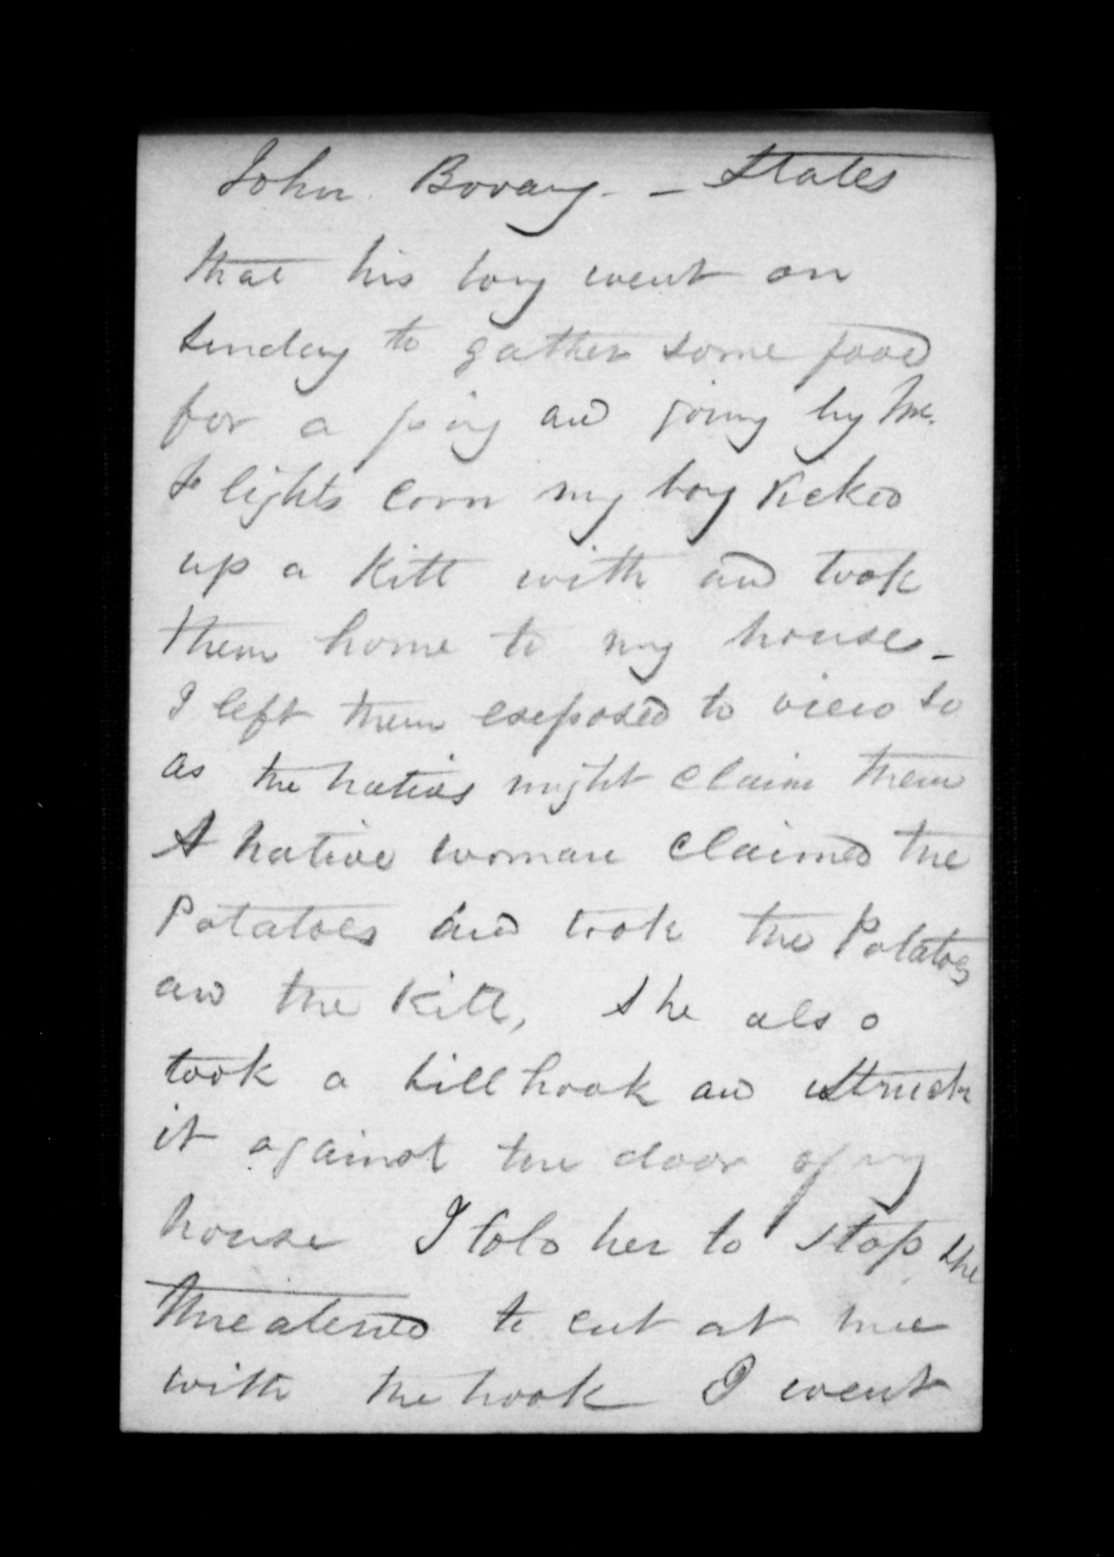 John Bovay - States
that his boy went on
Sunday to gather some food
for a pig and going by Mr.
Slights corn my boy kicked
up a kitt with and took
them home to my house -
I left them exposed to view so
as the natives might claim them
A native woman claimed the
Potatoes and took the Potatoes
and the Kitt, She also
took a billhook and struck
it against the door of my
house I told her to stop she
threatened to cut at me
with the hook I went